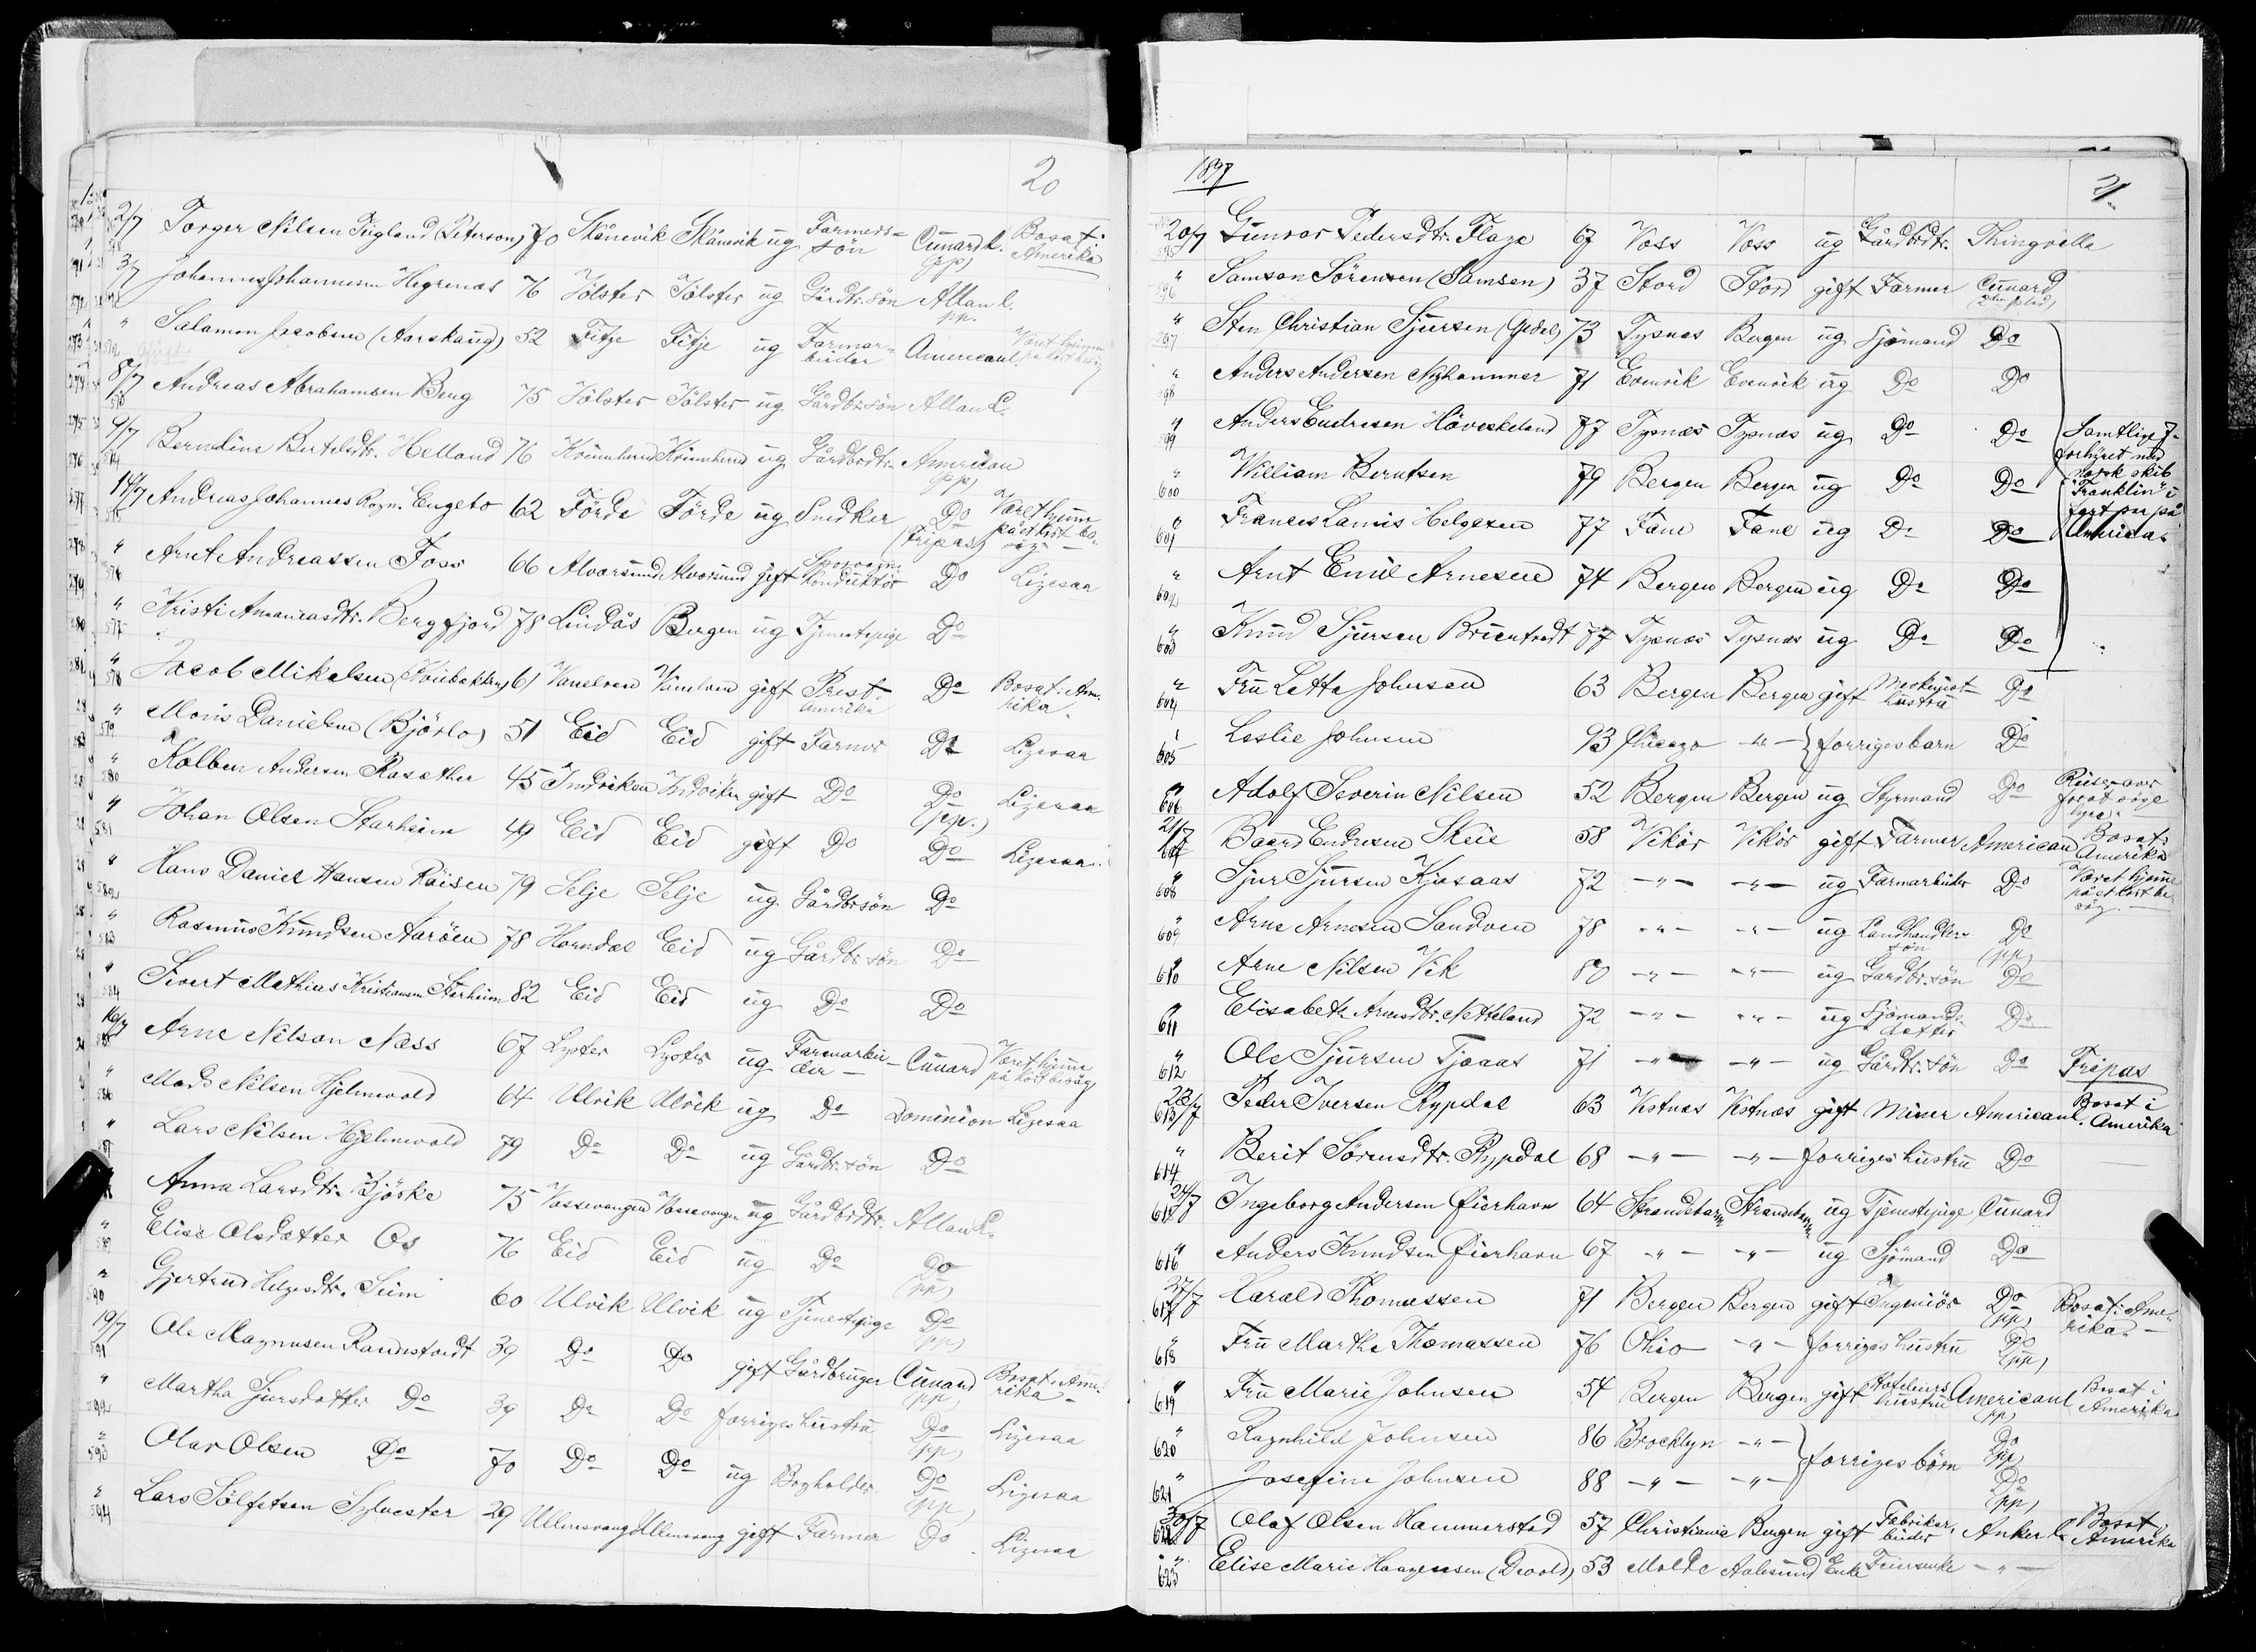 20
2/7 Torger Nilsen Tugland (Peterson) 70 Skånevik Skånevik ug Farmers-søn Cunard L. (pp) Bosat i Amerika
3/7 Johannes Johannesen Hegrenæs 76 Jölster Jölster ug Gårdbr.søn Allan L. pp.
" Salamon Jacobsen (Aarskaug) 52 Fitje Fitje ug Farmar-beider American L. Været hjemme på kort besøg
8/7 Andreas Abrahamsen Berg 75 Jölster Jölster ug Gårdbr.søn Allan L.
9/7 574 Berndine Bertelsdtr. Helland 76 Kvinnherred Kvinnherred ug Gårdbrdtr. American (pp)
14/7 575 Andreas Johannes Rogn. Engebø 62 Förde Förde ug Snedker Do (Fripas) Været hjemme på et kort besøg
" 576 Arnt Andreassen Foss 66 Alversund Alversund gift Sporveins Konduktør Do Ligesaa
" 577 Kristi Ananiasdtr. Bergfjord 78 Lindås Bergen ug Tjenestepige Do
" 578 Jacob Mikelsen 61 Vanelven Vanelven gift Prest Amerika Do Bosat i Amerika
" 579 Monis Danielsen (Bjørlo) 51 Eid Eid gift Farmer Do Ligesaa
" 580 Kolben Andersen Rosæther 45 Indviken Indviken gift Do Do (pp.) Ligesaa
" 581 Johan Olsen Starheim 49 Eid Eid gift Do Do Ligesaa
" 582 Hans Daniel Hansen Röisen 79 Selje Selje ug Gårdbr.søn Do
" 583 Rasmus Knudsen Aaröen 78 Horndal Eid ug Gårdbr.søn Do
" 584 Sivert Mathias Kristiansen Starheim 82 Eid Eid ug Do Do
16/7 585 Arne Nilson Næss 67 Lyster Lyster ug Farmarbeider Cunard Været hjemme på kort besøg
" 586 Mads Nilsen Hjelmevold 64 Ulvik Ulvik ug Do Dominion Ligesaa
" 587 Lars Nilsen Hjelmevold 79 Do Do ug Gårdbr.søn Do
Anna Larsdtr. Bjørke 75 Vossevangen Vossevangen ug Gårdbrdtr. Allan L.
" 589 Elise Olsdatter Os 76 Eid Eid ug Do Do (pp)
" 590 Gjertrud Helgesdtr. Seim 60 Ulvik Ulvik ug Tjenestepige Do (pp)
19/7 591 Ole Magnusen Rondestvedt 39 Do Do gift Gårdbruger Cunard (pp) Bosat i Amerika
" 592 Martha Sjursdatter Do 39 Do Do forriges hustru Do (pp) Ligesaa
" 593 Olav Olsen Do 70 Do Do ug Bogholder Do (pp) Ligesaa
" 594 Lars Sølfæstsen Sylvester 29 Ullensvang Ullensvang gift Farmer Do Ligesaa
1897
21.
20/7 595 Gunvor Pedersdtr. Flage 67 Voss Voss ug Gårdbrdtr. Thingvella
" 596 Samson Sørensen (Samsen) 37 Stord Stord gift Farmer Cunard
" 597 Sten Christian Sjursen 73 Tysnæs Bergen ug Sjömand Do
" 598 Anders Andersen Nyhammer 71 Evenvik Evenvik ug Do Do
" 599 Anders Endresen Höveskeland 77 Tysnæs Tysnæs ug Do Do Samtlige 7 forhyret med norsk skib
" 600 William Berntsen 79 Bergen Bergen ug Do Do "Franklin" i
" 601 Frances Lamis Helgesen 77 Fane Fane ug Do Do fart på Amerika
" 602 Arnt Emil Arnesen 74 Bergen Bergen ug Do Do
" 603 Knud Sjursen Bruntvedt 77 Tysnæs Tysnæs ug Do Do
" 604 Fru Letta Johnsen 63 Bergen Bergen gift Maskinist hustru Do
" 605 Leslie Johnsen 93 Chicago -"- forriges barn Do
" 606 Adolf Severin Nilsen 52 Bergen Bergen ug Styrmand Do Reiser over for at søge hyre
21/7 607 Baard Endresen Skeie 58 Vikör Vikör gift Farmer American Bosat i Amerika
" 608 Sjur Sjursen Kjosaas 72 -"- -"- ug Farmarbeider Do Været hjemme på et kort besøg
" 609 Arne Arnesen Sandven 78 -"- -"- ug Landhandlersøn Do (pp)
" 610 Arne Nilsen Vik 80 -"- -"- ug Gårdbr.søn Do
" 611 Elisabeth Arnesdtr. Netteland 72 -"- -"- ug Sjömandsdatter Do
" 612 Ole Sjursen Tjoaas 71 -"- -"- ug Gårdbr.søn Do Fripas
23/7 613 Peder Iversen Rypdal 63 Vestnæs Vestnæs gift Miner American L. Bosat i Amerika
" 614 Berit Sørensdtr. Rypdal 68 -"- -"- forriges hustru Do
24/7 615 Ingeborg Andersen Øierhavn 64 Strandebarm Strandebarm ug Tjenestepige Cunard
" 616 Anders Knudsen Øierhavn 67 -"- -"- ug Sjömand Do
27/7 617 Harald Thomassen 71 Bergen Bergen gift Ingeniør Do (pp) Bosat i Amerika
" 618 Fru Martha Thomassen 76 Ohio -"- forriges hustru Do (pp)
" 619 Fru Marie Johnsen 54 Bergen Bergen gift Hoteleiers hustru American L (pp) Bosat i Amerika
" 620 Ragnhild Johnsen 86 Brocklyn -"- forriges børn Do (pp)
" 621 Josefine Johnsen 88 -"- -"- Do (pp)
30/7 622 Olaf Olsen Hammerstad 57 Christiania Bergen gift Fabrikarbeider Anker L. Bosat i Amerika
" 623 Elise Marie Haagensen (Devold) 53 Molde Aalesund Enke -"-